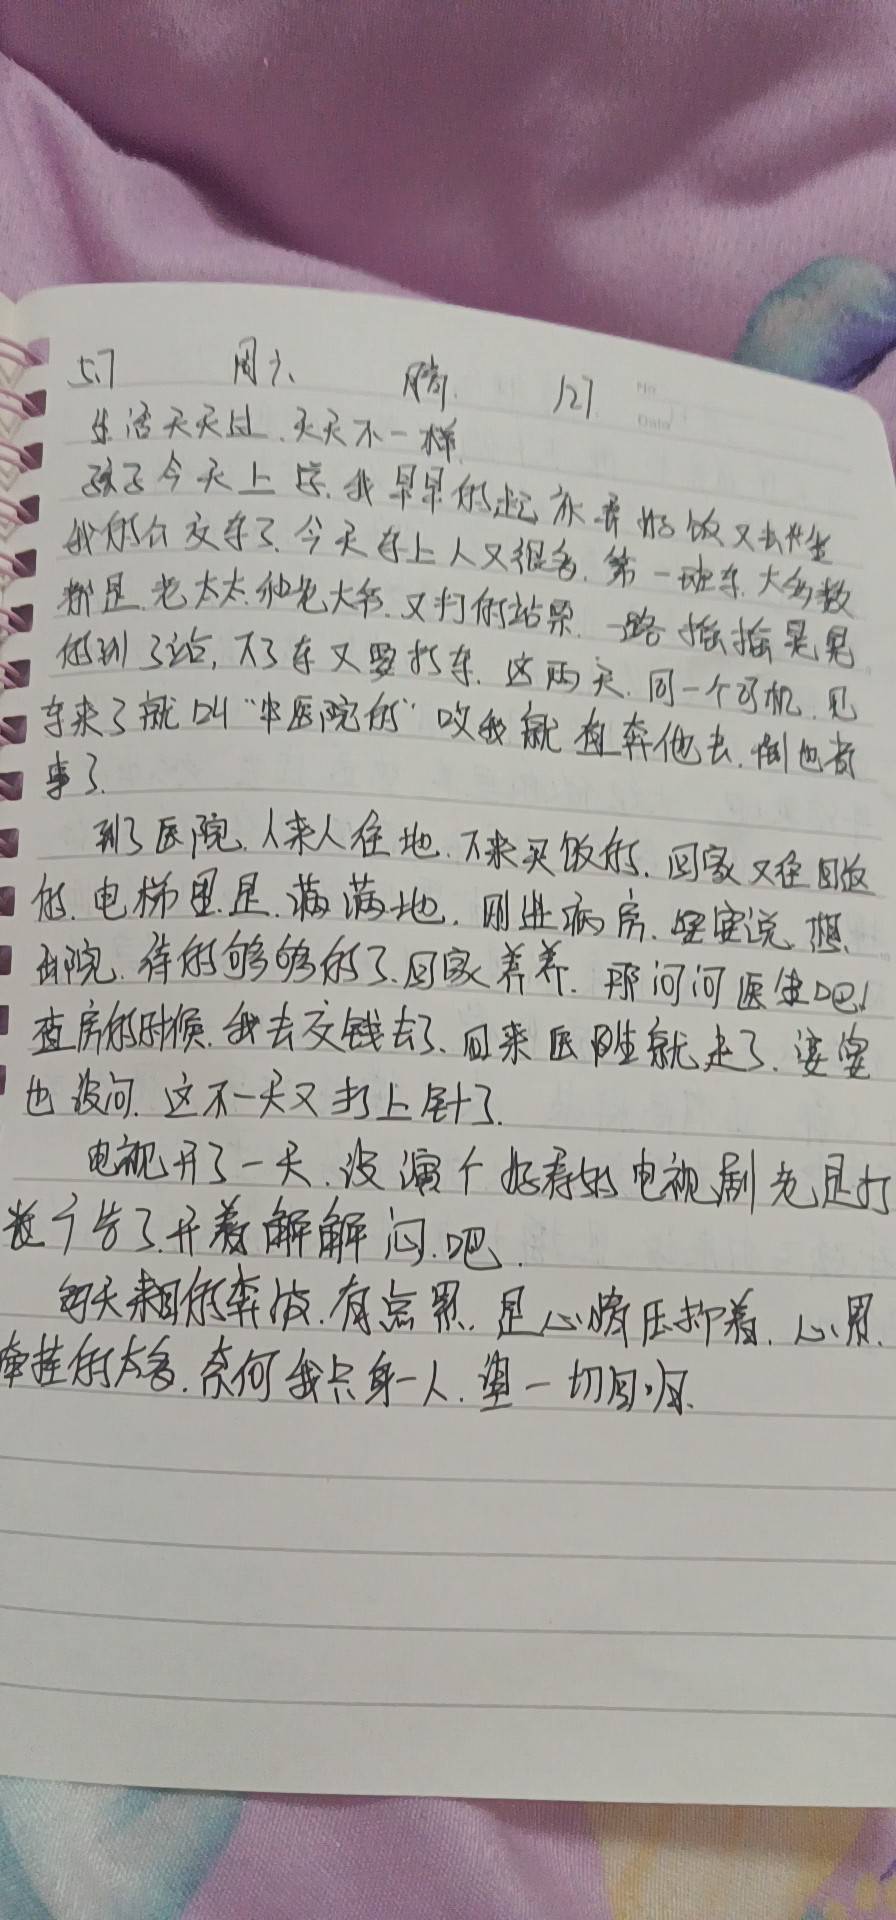 5.7 周六 晴 127
生活天天过、天天不一样
孩子今天上学、我早早的起来弄好饭又去坐
我的公交车了、今天车上人又很多、第一班车、大多数
都是老太太、和老大爷、又打的站票、一路摇摇晃晃
的到了站，下了车又要打车、这两天、同一个司机、见
车来了就叫“中医院的”哎我就直奔他去、倒也省
事了、
到了医院、人来人往地、下来买饭的、回家又往回返
的、电梯里是、满满地、刚进病房、婆婆说、想、
出院、待的够够的了、回家养养、那问问医生吧！
查房的时候、我去交钱去了、回来医生就走了、婆婆
也没问、这不一天又打上针了、
电视开了一天、没演个好看的电视剧老是打
这广告了、开着解解闷、吧、
每天来回的奔波、有点累、是心情压抑着、心累、
牵挂的太多、奈何我只身一人、望一切